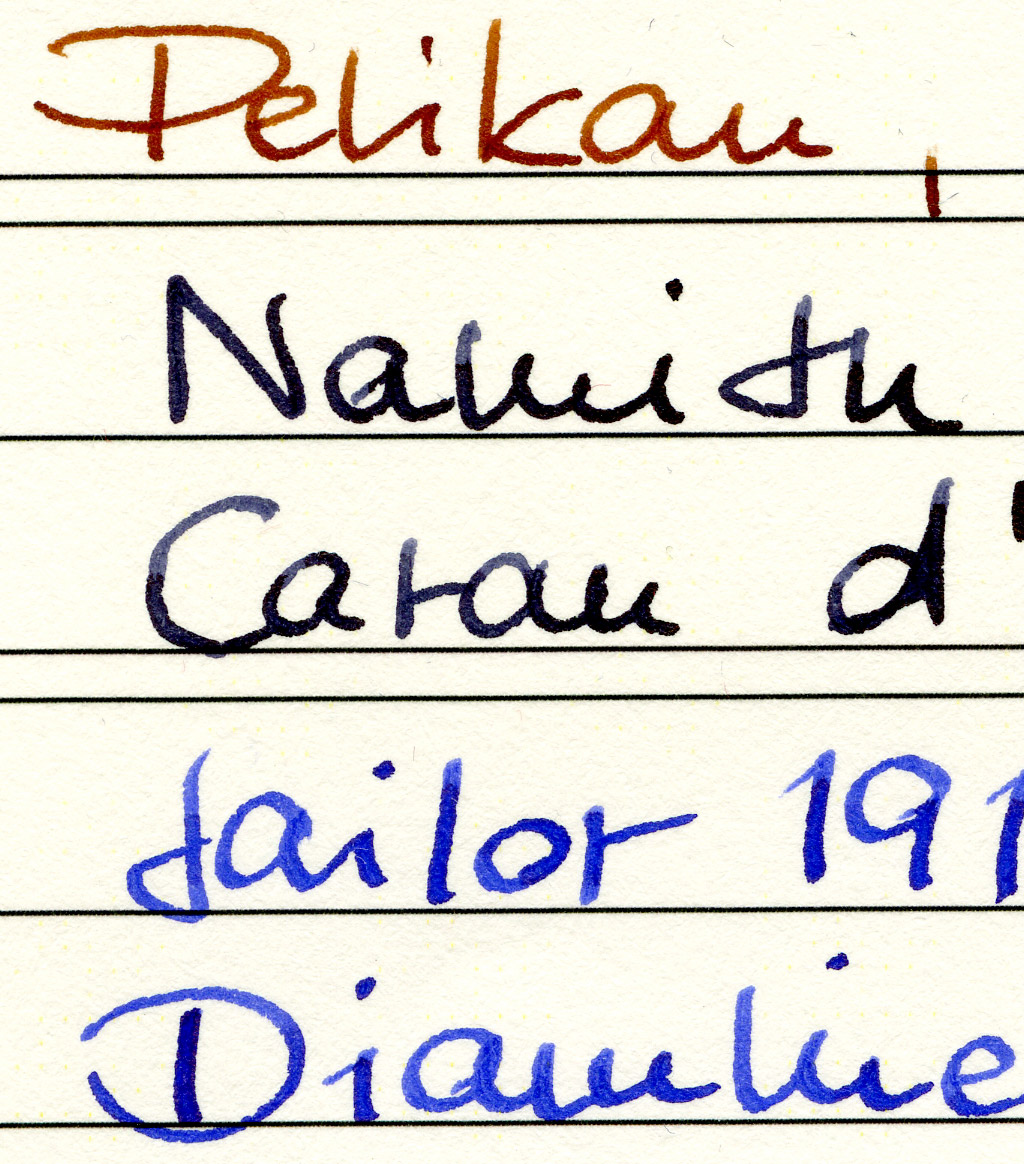 Pelikan,
Namisu
Caran d'
Sailor 191
Diamine